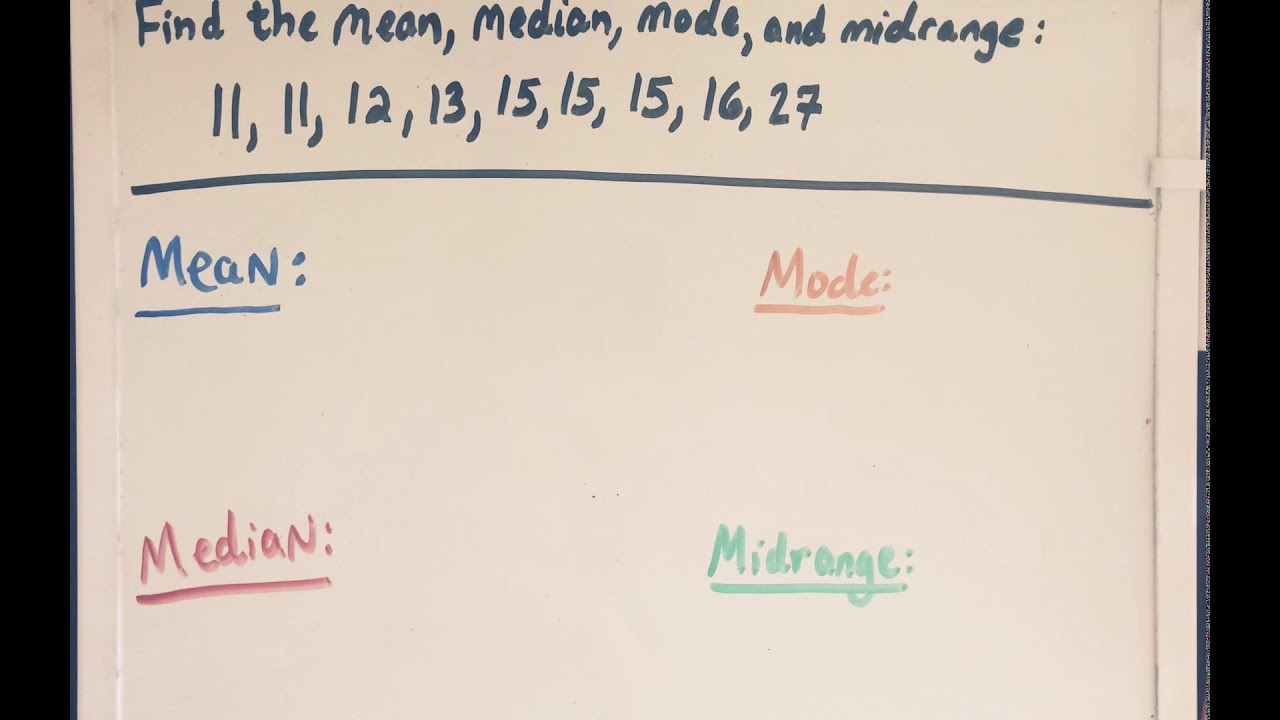 Find the Mean, Median, Mode, and midrange:
11, 11, 12, 13, 15, 15, 15, 16, 27
Mean:
Mode:
Median:
Midrange: